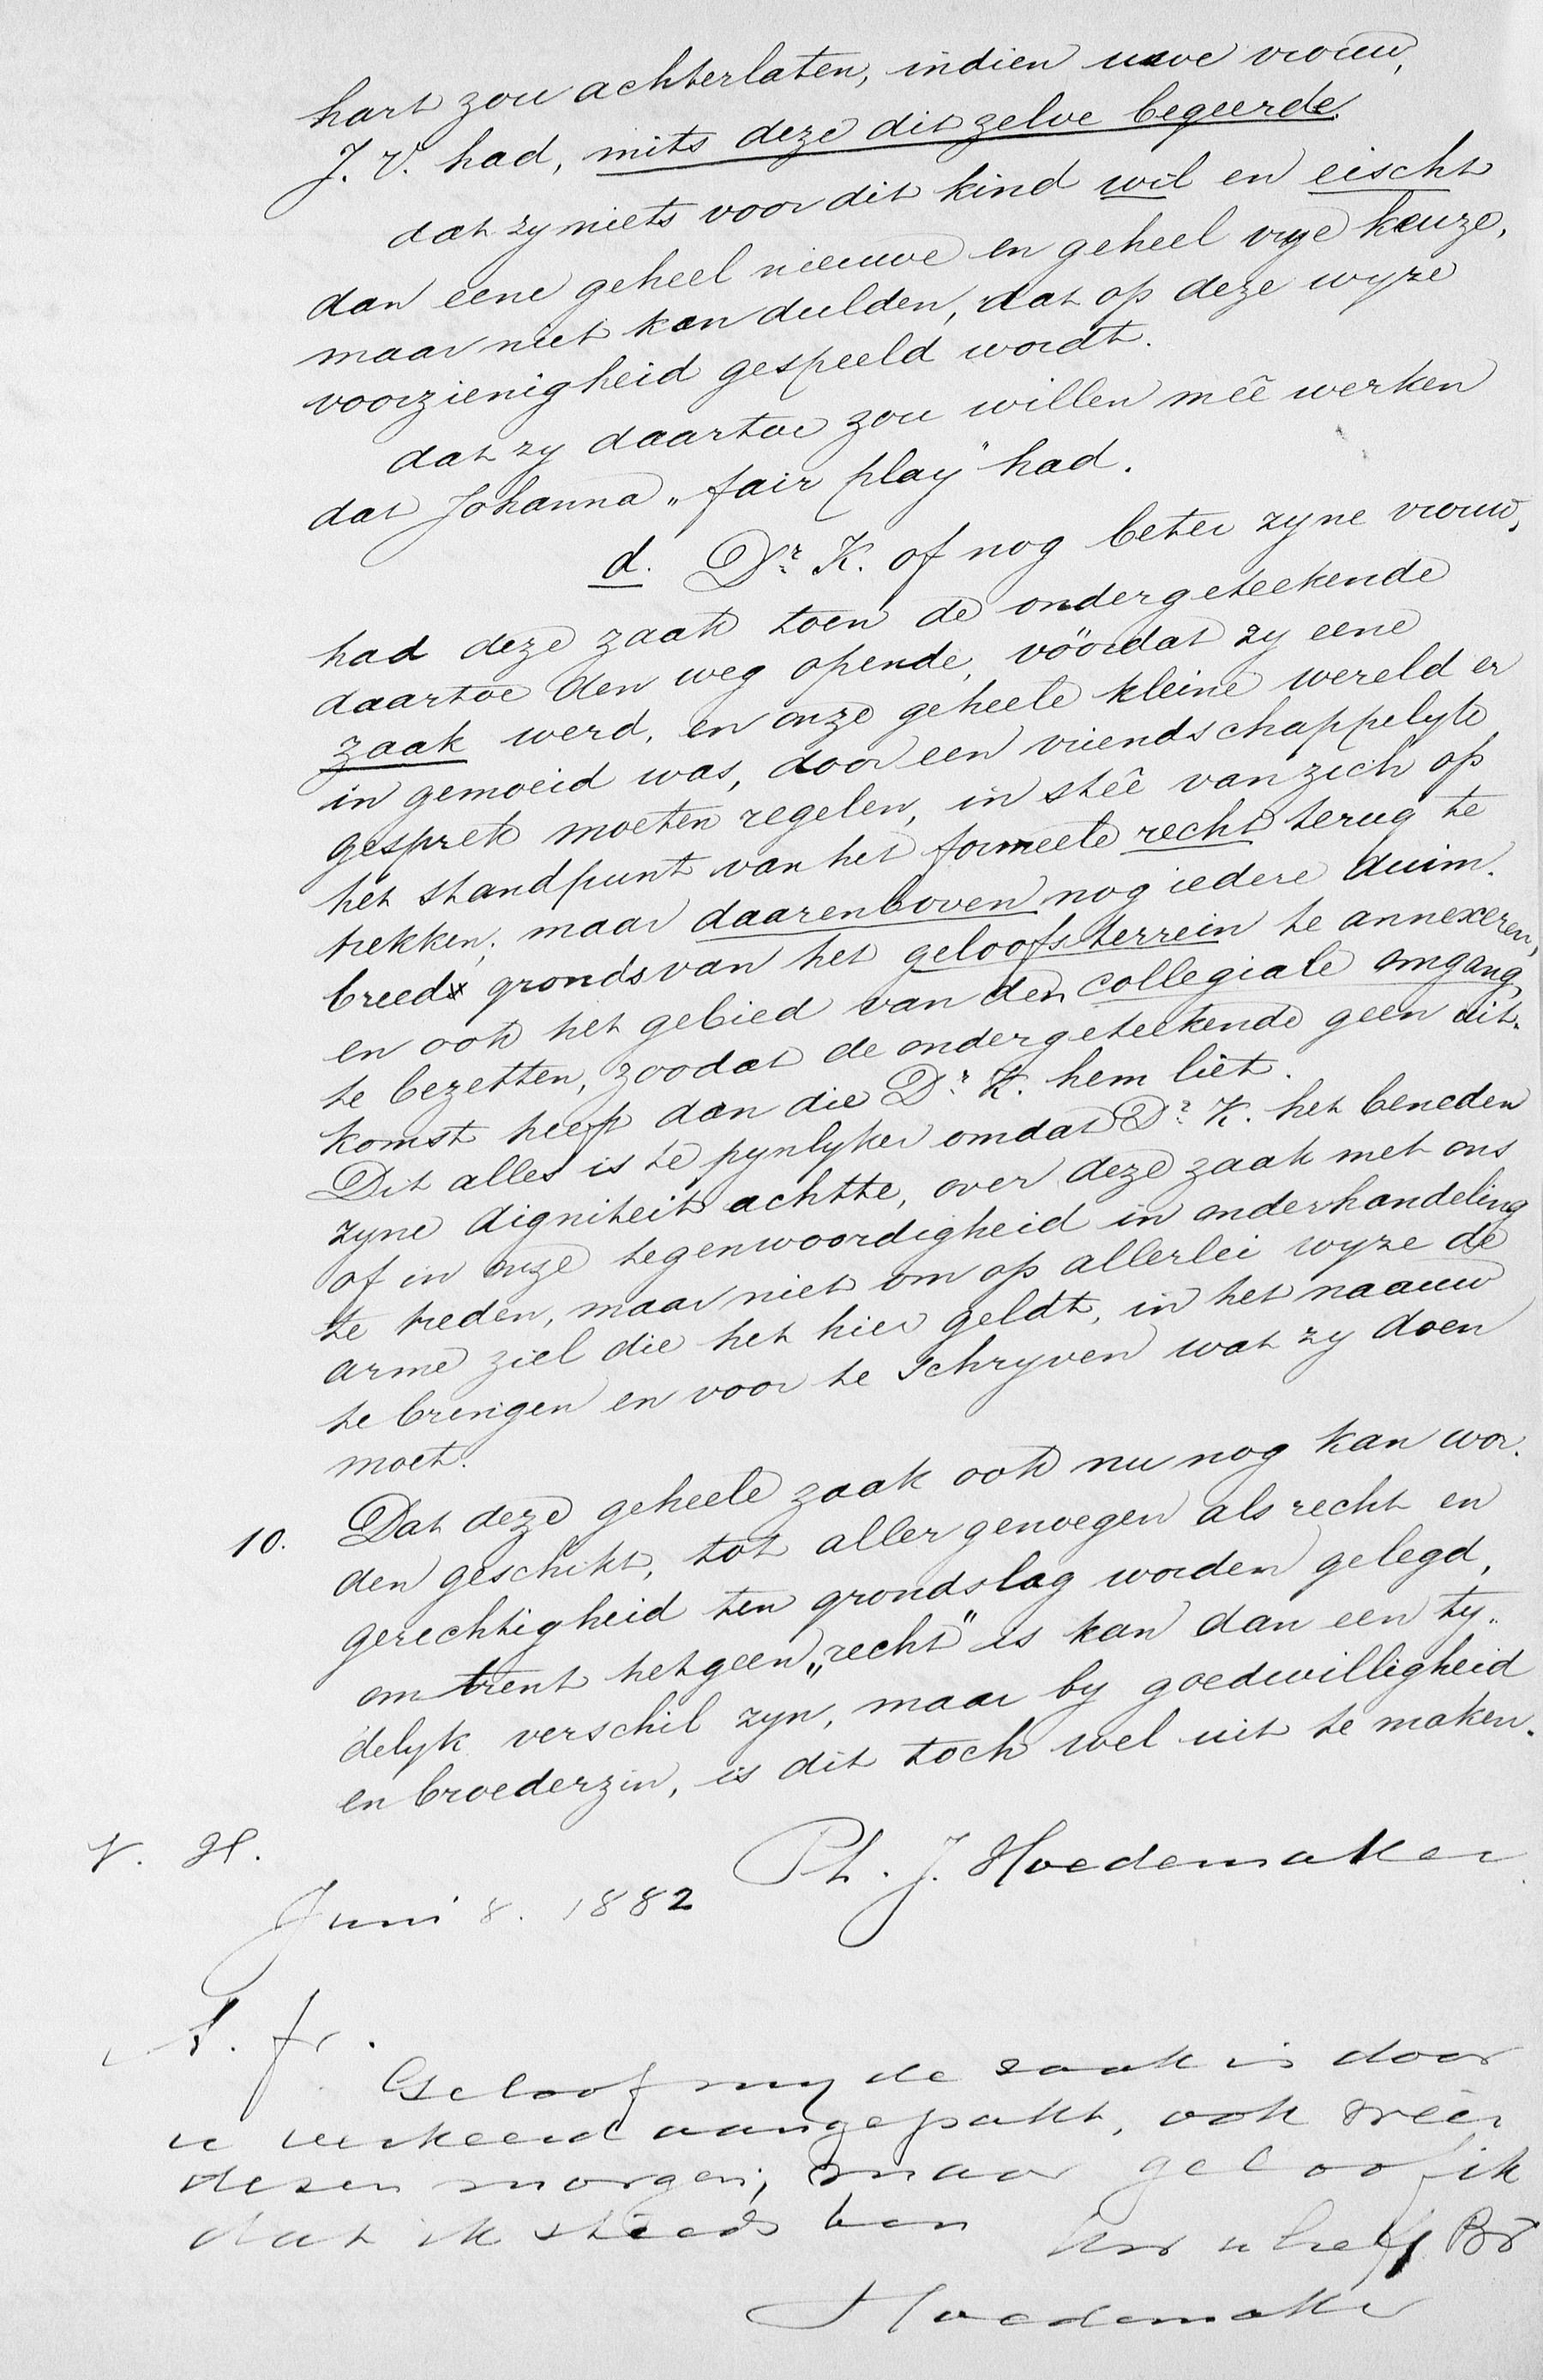 hart zou achterlaten, indien uwe vrouw,
J. V. had, mits deze dit zelve begeerde.
dat zy niets voor dit kind wil en eischt
dan eene geheel nieuwe en geheel vrye keuze,
maar niet kan dulden, dat op deze wyze
voorzienigheid gespeeld wordt.
dat zy daartoe zou willen meê werken
dat Johanna „fair play" had.
d. Dr. K. of nog beter zyne vrouw,
had deze zaak toen de ondergeteekende
daartoe den weg opende, vóórdat zy eene
zaak werd, en onze geheele kleine wereld er
in gemoeid was, door een vriendschappelyk
gesprek moeten regelen, in steê van zich op
het standpunt van het formeele recht terug te
trekken; maar daarenboven nog iedere duim-
breed gronds van het geloofsterrein te annexeren,
en ook het gebied van den collegiale omgang,
te bezetten, zoodat de ondergeteekende geen uit-
komst heeft dan die Dr. K. hem liet.
Dit alles is te pynlyker omdat Dr. K. het beneden
zyne digniteit achtte, over deze zaak met ons
of in onze tegenwoordigheid in onderhandeling
te treden, maar niet om op allerlei wyze de
arme ziel die het hier geldt, in het naauw
te brengen en voor te schryven wat zy doen
moet.
10. Dat deze geheele zaak ook nu nog kan wor-
den geschikt, tot aller genoegen als recht en
gerechtigheid ten grondslag worden gelegd,
omtrent hetgeen „recht" is kan dan een ty-
delyk verschil zyn, maar by goedwilligheid
en broederzin, is dit toch wel uit te maken.
V. H.
Ph. J. Hoedemaker
Juni 8. 1882
A. fr.
Geloof my de zaak is door
u verkeerd aangepakt, ook weêr
dezen morgen, maar geloof ik
dat ik steeds ben
uw u lief Br
Hoedemaker